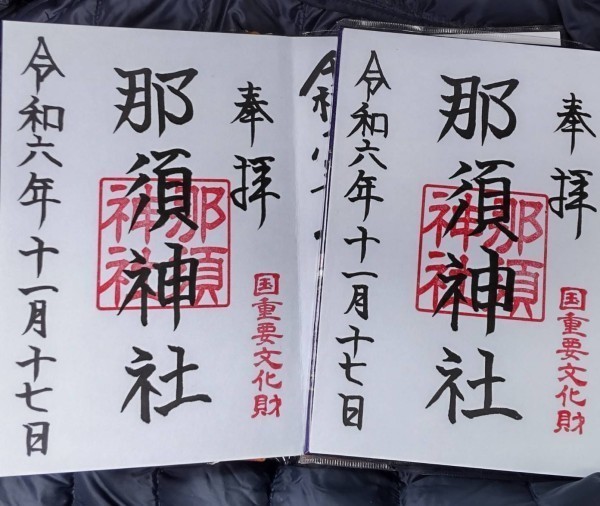 奉拝
那須神社
那須神社
国重要文化財
令和六年十一月十七日
奉拝
那須神社
那須神社
国重要文化財
令和六年十一月十七日